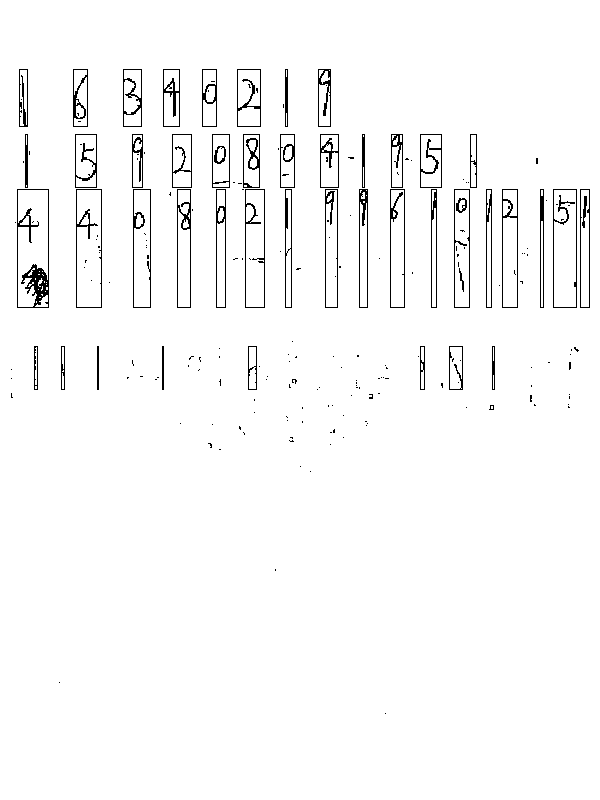 1 6 3 4 0 2 1 9
1 5 9 2 0 8 0 4 1 9 5
4 4 0 8 0 2 1 9 9 6 1 0 1 2 1 5 1